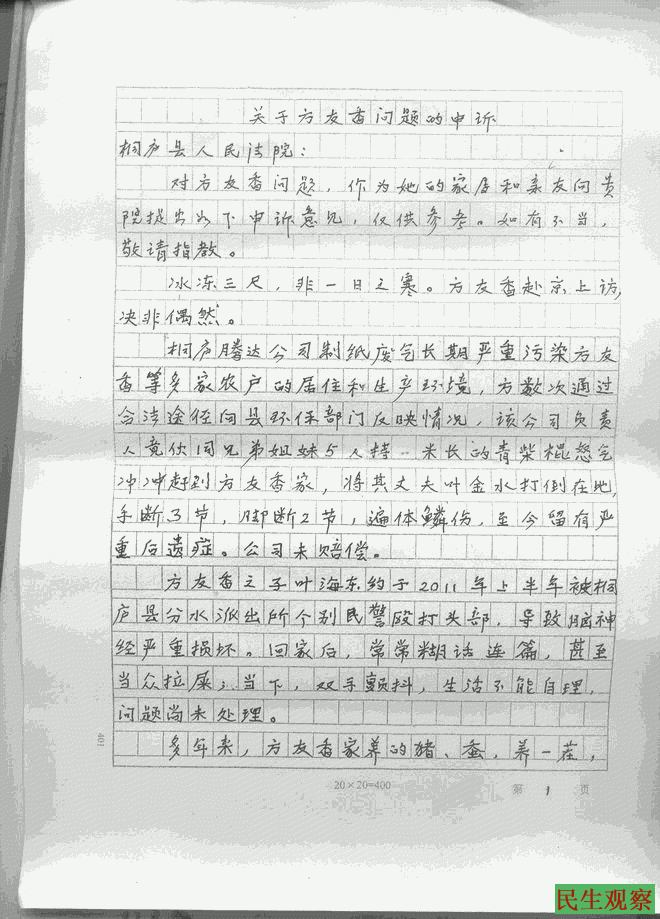 关于方友香问题的申诉
桐庐县人民法院：
对方友香问题，作为她的家属和亲友向贵
院提出如下申诉意见，仅供参考。如有不当，
敬请指教。
冰冻三尺，非一日之寒。方友香赴京上访，
决非偶然。
桐庐腾达公司制纸废气长期严重污染方友
香等多家农户的居住和生产环境，方数次通过
合法途径向县环保部门反映情况，该公司负责
人竟伙同兄弟姐妹5人持一米长的青柴棍怒气
冲冲赶到方友香家，将其丈夫叶金水打倒在地，
手断3节，脚断2节，遍体鳞伤，至今留有严
重后遗症。公司未赔偿。
方友香之子叶海东约于2011年上半年被桐
庐县分水派出所个别民警殴打头部，导致脑神
经严重损坏。回家后，常常糊话连篇，甚至
当众拉屎，当下，双手颤抖，生活不能自理，
问题尚未处理。
多年来，方友香家养的猪、蚕，养一茬，
401
20×20=400
第 1 页
民生观察